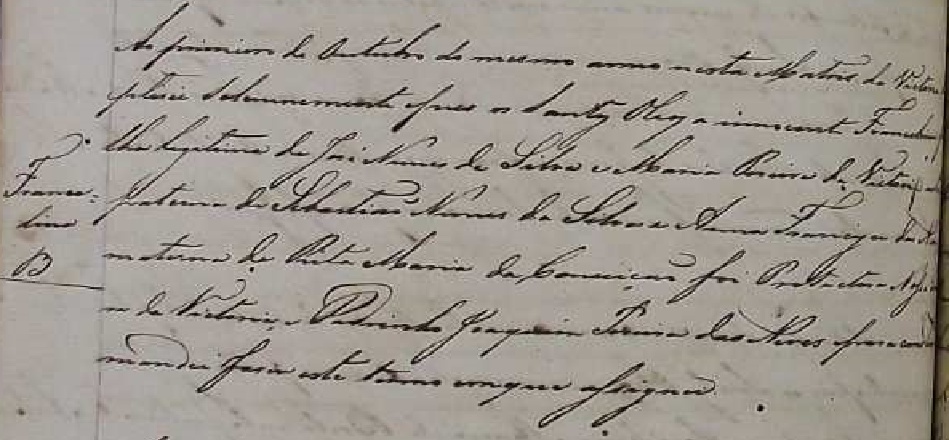 Ao primeiro de Outubro do mesmo anno nesta Matris da Victoria
ptisei Solennemente e pus os Santos Oleos a innocente Francelina
lha legitima de José Nunes da Silva e Maria Pereira da Victoria
Francelina
paterna de Sebastião Nunes da Silva e Anna Francisca
B
materna de Rita Maria da Conceição foi Protectora N. Sr.
da Victoria, e Padrinho Joaquim Pereira das Neves para constar
mandei faser este termo em que assignei